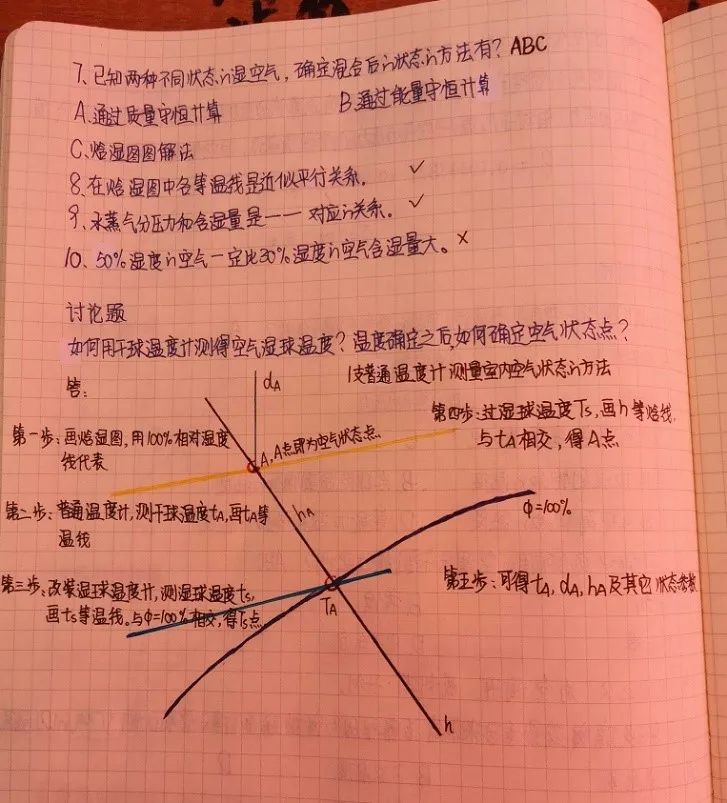 7、已知两种不同状态的湿空气，确定混合后的状态的方法有？ABC
A、通过质量守恒计算 B、通过能量守恒计算
C、焓湿图图解法
8、在焓湿图中各等温线是近似平行关系。 ✓
9、水蒸气分压力和含湿量是一一对应的关系。 ✓
10、50%湿度的空气一定比30%湿度的空气含湿量大。×
讨论题
如何用干球温度计测得空气湿球温度？温度确定之后，如何确定空气状态点？
答：
dA
1支普通温度计测量室内空气状态的方法
第一步：画焓湿图，用100%相对湿度
线代表
A，A点即为空气状态点
第四步：过湿球温度Ts，画h等焓线，
与tA相交，得A点
第二步：普通温度计，测干球温度tA，画tA等
温线
hA
φ=100%
第三步：改装湿球温度计，测湿球温度ts，
画ts等温线。与φ=100%相交，得Ts点
TA
第五步：可得tA，dA，hA及其它状态参数
h